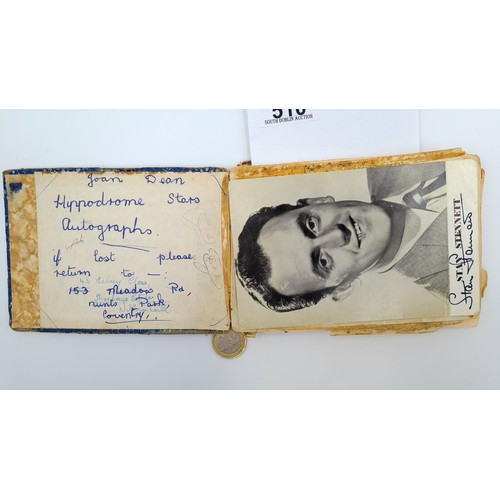 510
SOUTH DUBLIN AUCTION
Joan Dean
Hyppodrome Stars
Autographs.
if lost please
return to —:
153 Meadow Rd,
nunts Park,
Coventry.
STAN STENNETT
Stan Stennett